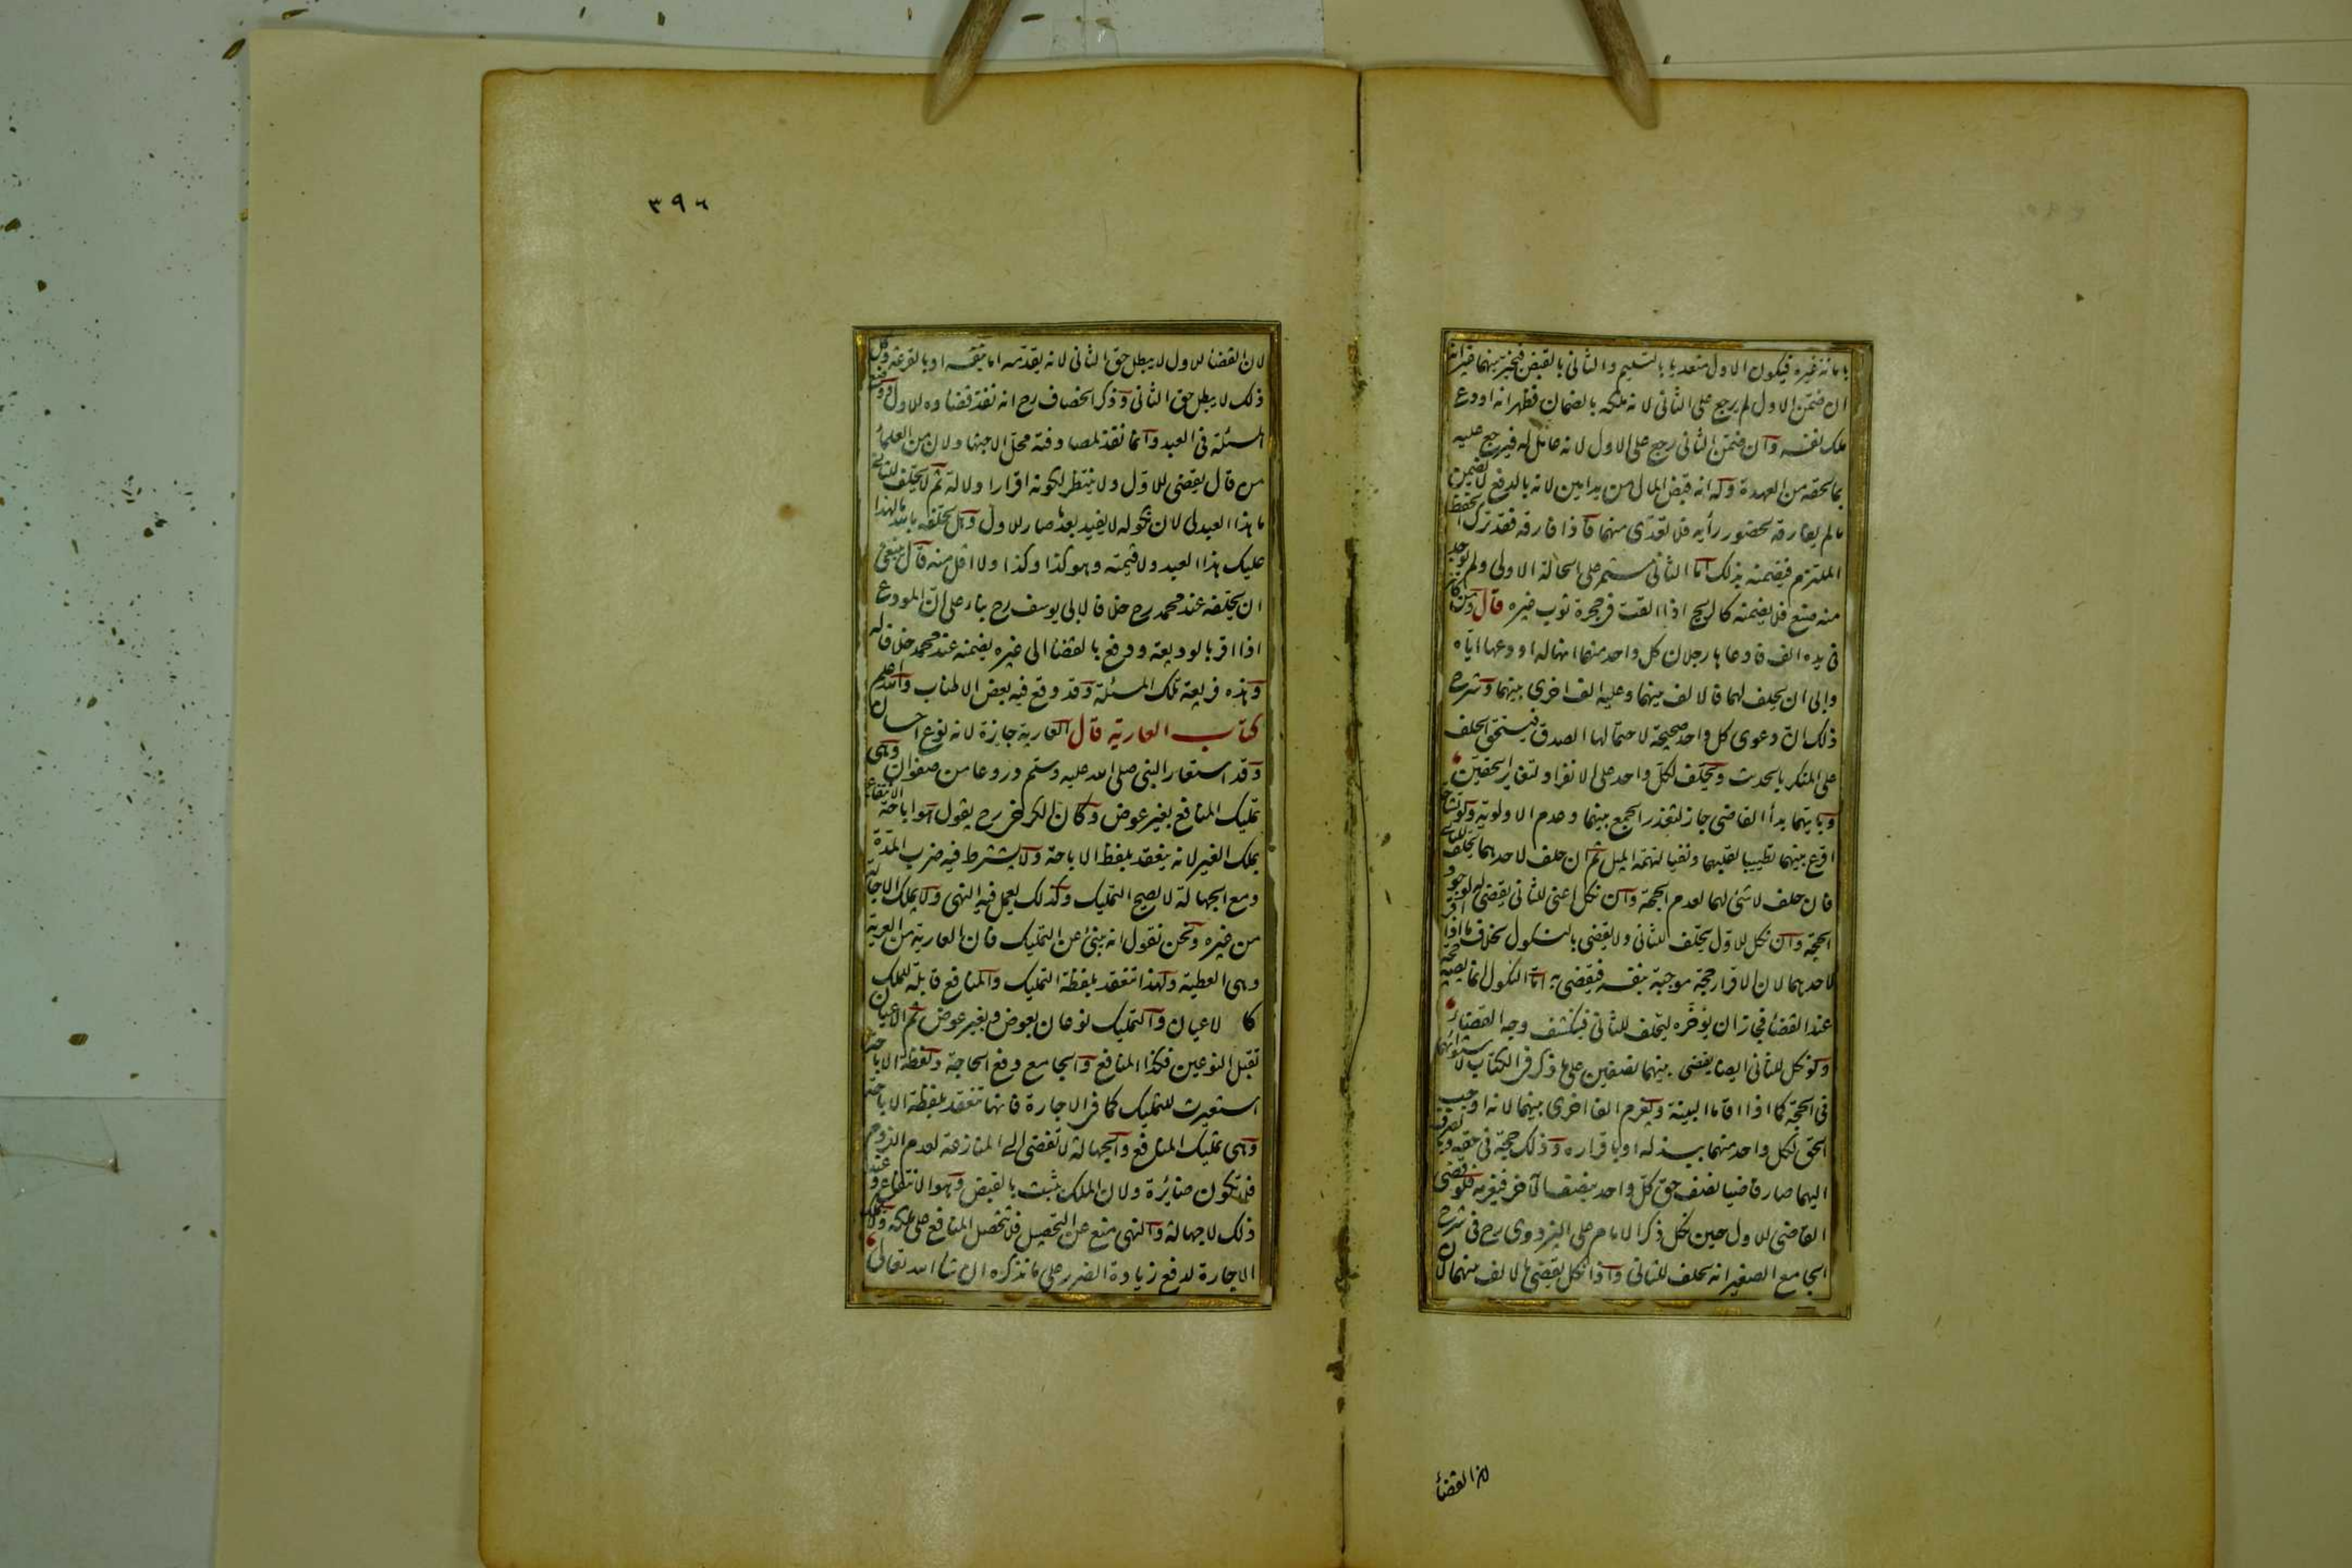 بامانة غيره فيكون الاول متعديا بالتسليم والثاني بالقبض فيخير بينهما غير انه
ان ضمن الاول لم يرجع على الثاني لانه ملكه بالضمان فظهر انه اودع
ملك نفسه وان ضمن الثاني رجع على الاول لانه عامل له فيرجع عليه
بما لحقه من العهدة وله انه قبض المال من يد امين لانه بالدفع لا يضمن
ما لم يفارقه لحضور رأيه فلا تعدى منهما فاذا فارقه فقد ترك الحفظ
الملتزم فيضمنه بذلك اما الثاني مستمر على الحالة الاولى ولم يوجد
منه صنع فلا يضمنه كالريح اذا القت فى حجره ثوب غيره قال ومن كان
فى يده الف فادعاها رجلان كل واحد منهما انها له اودعها اياه
وابى ان يحلف لهما فالالف بينهما وعليه الف اخرى بينهما وشرح
ذلك ان دعوى كل واحد صحيحة لاحتمالها الصدق فيستحق الحلف
على المنكر بالحديث ويحلف لكل واحد على الانفراد لتغاير الحقين
وبايهما بدأ القاضى جاز لتعذر الجمع بينهما وعدم الاولوية ولو تشاحا
اقرع بينهما تطييبا لقلبهما ونفيا لتهمة الميل ثم ان حلف لاحدهما يحلف للثاني
فان حلف لا شئ لهما لعدم الحجة وان نكل اعنى للثانى يقضى له لوجود
الحجة وان نكل للاول يحلف للثانى ولا يقضى بالنكول بخلاف ما اذا اقر
لاحدهما لان الاقرار حجة موجبة بنفسه فيقضى به اما النكول انما يصير حجة
عند القضاء فجاز ان يؤخره ليحلف للثانى فينكشف وجه القضاء
ولو نكل للثانى ايضا يقضى بينهما نصفين على ما ذكر فى الكتاب لاستوائهما
فى الحجة كما اذا اقاما البينة ويغرم الفا اخرى بينهما لانه اوجب
الحق لكل واحد منهما ببذله او باقراره وذلك حجة فى حقه وبالصرف
اليهما صار قاضيا نصف حق كل واحد بنصف الآخر فيغرمه فلو قضى
القاضى للاول حين نكل ذكر الامام على البزدوى رح فى شرح
الجامع الصغير انه يحلف للثانى واذا نكل يقضى بالالف بينهما لان
لان القضاء
٣٩٦
لان القضاء للاول لا يبطل حق الثانى لانه يقدمه اما بنفسه او بالقرعة وكل
ذلك لا يبطل حق الثانى وذكر الخصاف رح انه نفذ قضاؤه للاول ووضع
المسئلة فى العبد وانما نفذ لمصادفته محل الاجتهاد لان من العلماء
من قال يقضى للاول ولا ينتظر لكونه اقرارا دلالة ثم لا يحلف للثانى
ما هذا العبد لى لان نكوله لا يفيد بعد ما صار للاول وهل يحلفه بالله ما لهذا
عليك هذا العبد ولا قيمته وهو كذا وكذا ولا اقل منه قال ينبغى
ان يحلفه عند محمد رح خلافا لابى يوسف رح بناء على ان المودع
اذا اقر بالوديعة ودفع بالقضاء الى غيره يضمنه عند محمد خلافا له
وهذه فريعة تلك المسئلة وقد وقع فيه بعض الاطناب والله اعلم
كتاب العارية قال العارية جايزة لانه نوع احسان
وقد استعار النبى صلى الله عليه وسلم دروعا من صفوان وهى
تمليك المنافع بغير عوض وكان الكرخى رح يقول هو اباحة الانتفاع
بملك الغير لانه ينعقد بلفظ الاباحة ولا يشترط فيه ضرب المدة
ومع الجهالة لا يصح التمليك وكذلك يعمل فيه النهى ولا يملك الاجارة
من غيره ونحن نقول انه ينبئ عن التمليك فان العارية من العرية
وهى العطية ولهذا تنعقد بلفظة التمليك والمنافع قابلة للملك
كالاعيان والتمليك نوعان بعوض وبغير عوض ثم الاعيان
تقبل النوعين فكذا المنافع والجامع دفع الحاجة ولفظة الاباحة
استعيرت للتمليك كما فى الاجارة فانها تنعقد بلفظة الاباحة
وهى تمليك المنافع والجهالة لا تفضى الى المنازعة لعدم اللزوم
فلا تكون ضائرة ولان الملك يثبت بالقبض وهو الانتفاع وعند
ذلك لا جهالة والنهى منع عن التحصيل فلا تتحصل المنافع على ملكه ولا يملك
الاجارة لدفع زيادة الضرر على ما نذكره ان شاء الله تعالى